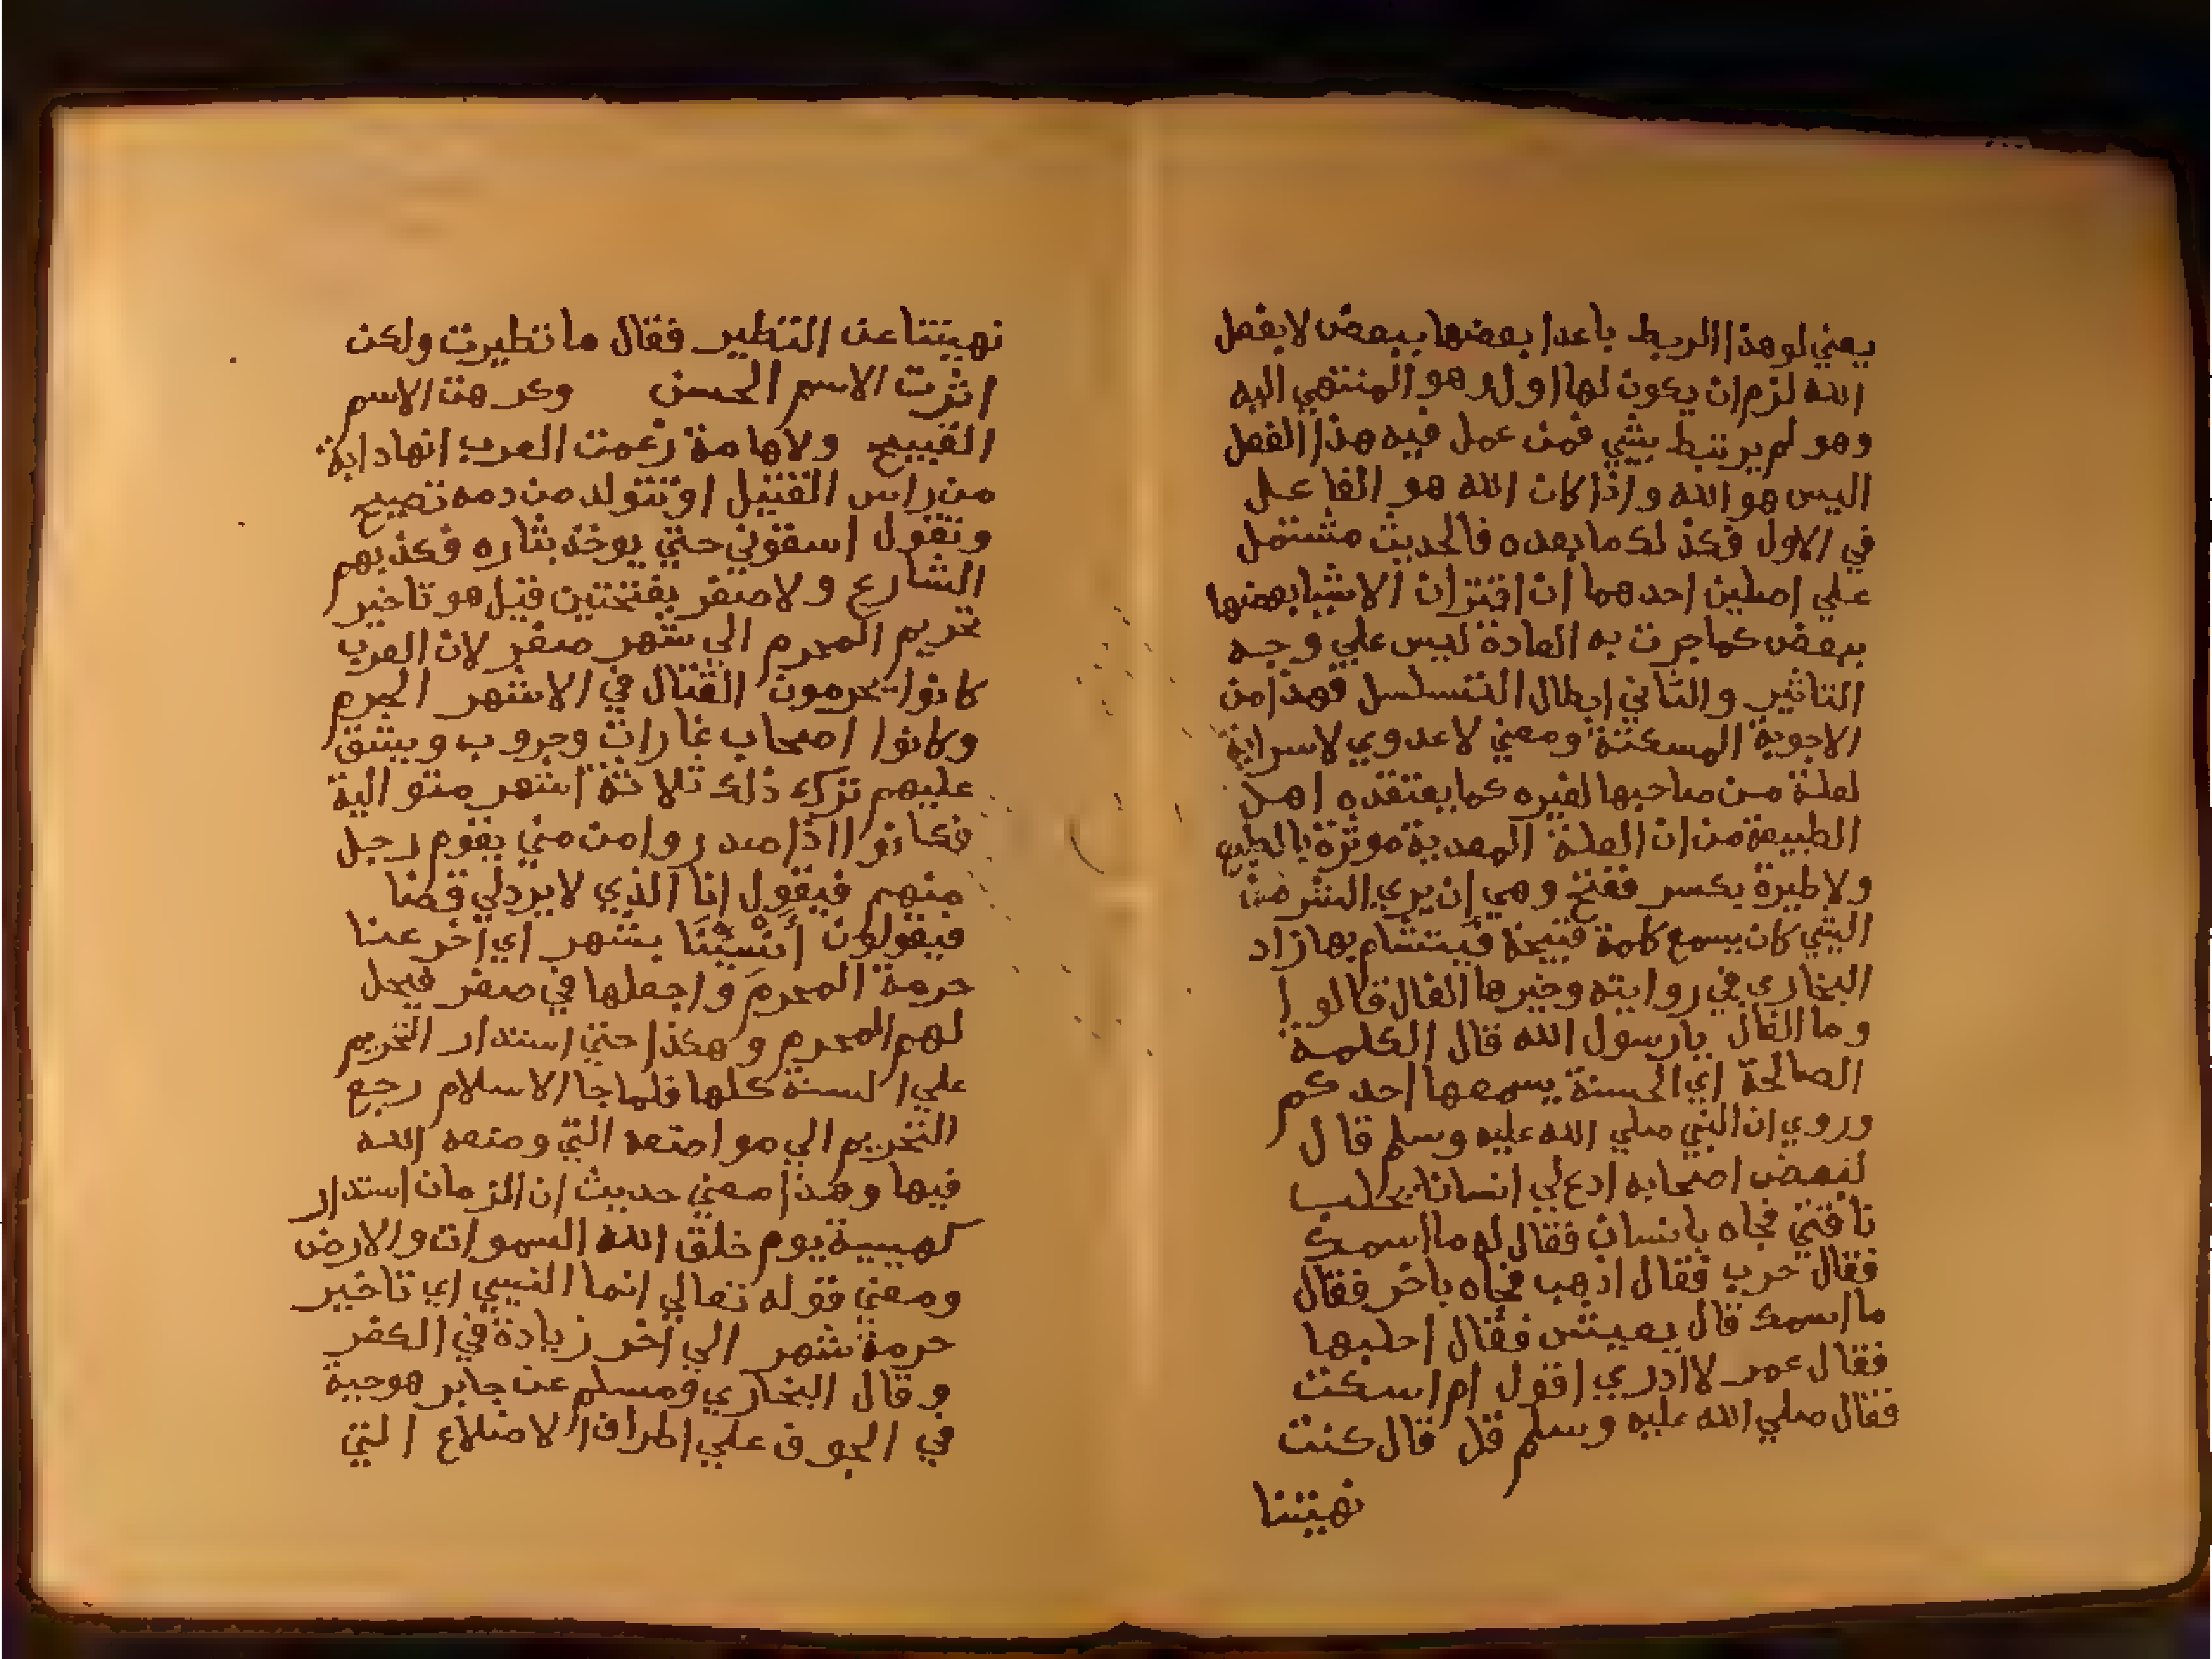 يعني لو هذا الربط باعدا بعضها ببعض لا بفعل
الله لزم ان يكون لها اول وهو المنتهي اليه
وهو لم يرتبط بشي فمن عمل فيه هذا الفعل
اليس هو الله واذا كان الله هو الفاعل
في الاول فكذلك ما بعده فالحديث مشتمل
علي اصلين احدهما ان اقتران الاشيا بعضها
ببعض كما جرت به العادة ليس علي وجه
التاثير والثاني ابطال التسلسل فهذا من
الاجوبة المسكتة ومعني لا عدوي لا سراية
لعلة من صاحبها لغيره كما يعتقده اهل
الطبيعة من ان العلة المعدية موثرة بالطبع
ولا طيرة بكسر ففتح وهي ان يري الشر من
الشي كان يسمع كلمة قبيحة فيتشام بها زاد
البخاري في روايته وخيرها الفال قالوا
وما الفال يا رسول الله قال الكلمة
الصالحة اي الحسنة يسمعها احدكم
وروي ان النبي صلي الله عليه وسلم قال
لبعض اصحابه ادع لي انسانا يحلب
ناقتي فجاه بانسان فقال له ما اسمك
فقال حرب فقال اذهب فجاه باخر فقال
ما اسمك قال يعيش فقال احلبها
فقال عمر لا ادري اقول ام اسكت
فقال صلي الله عليه وسلم قل قال كنت
نهيتنا
نهيتنا عن التطير فقال ما تطيرت ولكن
اثرت الاسم الحسن وكرهت الاسم
القبيح ولا هامة زعمت العرب انها دابة
من راس القتيل او تتولد من دمه تصيح
وتقول اسقوني حتي يوخذ بثاره فكذبهم
الشارع ولا صفر بفتحتين قيل هو تاخير
تحريم المحرم الي شهر صفر لان العرب
كانوا يحرمون القتال في الاشهر الحرم
وكانوا اصحاب غارات وحروب ويشق
عليهم ترك ذلك ثلاثة اشهر متوالية
فكانوا اذا صدروا من مني يقوم رجل
منهم فيقول انا الذي لا يرد لي قضا
فيقولون أَنْسِئْنَا بشهر اي آخر عنا
حرمة المحرم واجعلها في صفر فيحل
لهم المحرم وهكذا حتي استدار التحريم
علي السنة كلها فلما جا الاسلام رجع
التحريم الي مواضعه التي وضعه الله
فيها وهذا معني حديث ان الزمان استدار
كهييية يوم خلق الله السموات والارض
ومعني قوله تعالي انما النسي اي تاخير
حرمة شهر الي آخر زيادة في الكفر
وقال البخاري ومسلم عن جابر هو حية
في الجوف علي اطراف الاضلاع التي